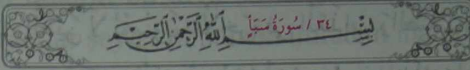 ٣٤ / سُورَةُ سَبَإٍ
بِسْمِ اللَّهِ الرَّحْمَٰنِ الرَّحِيمِ